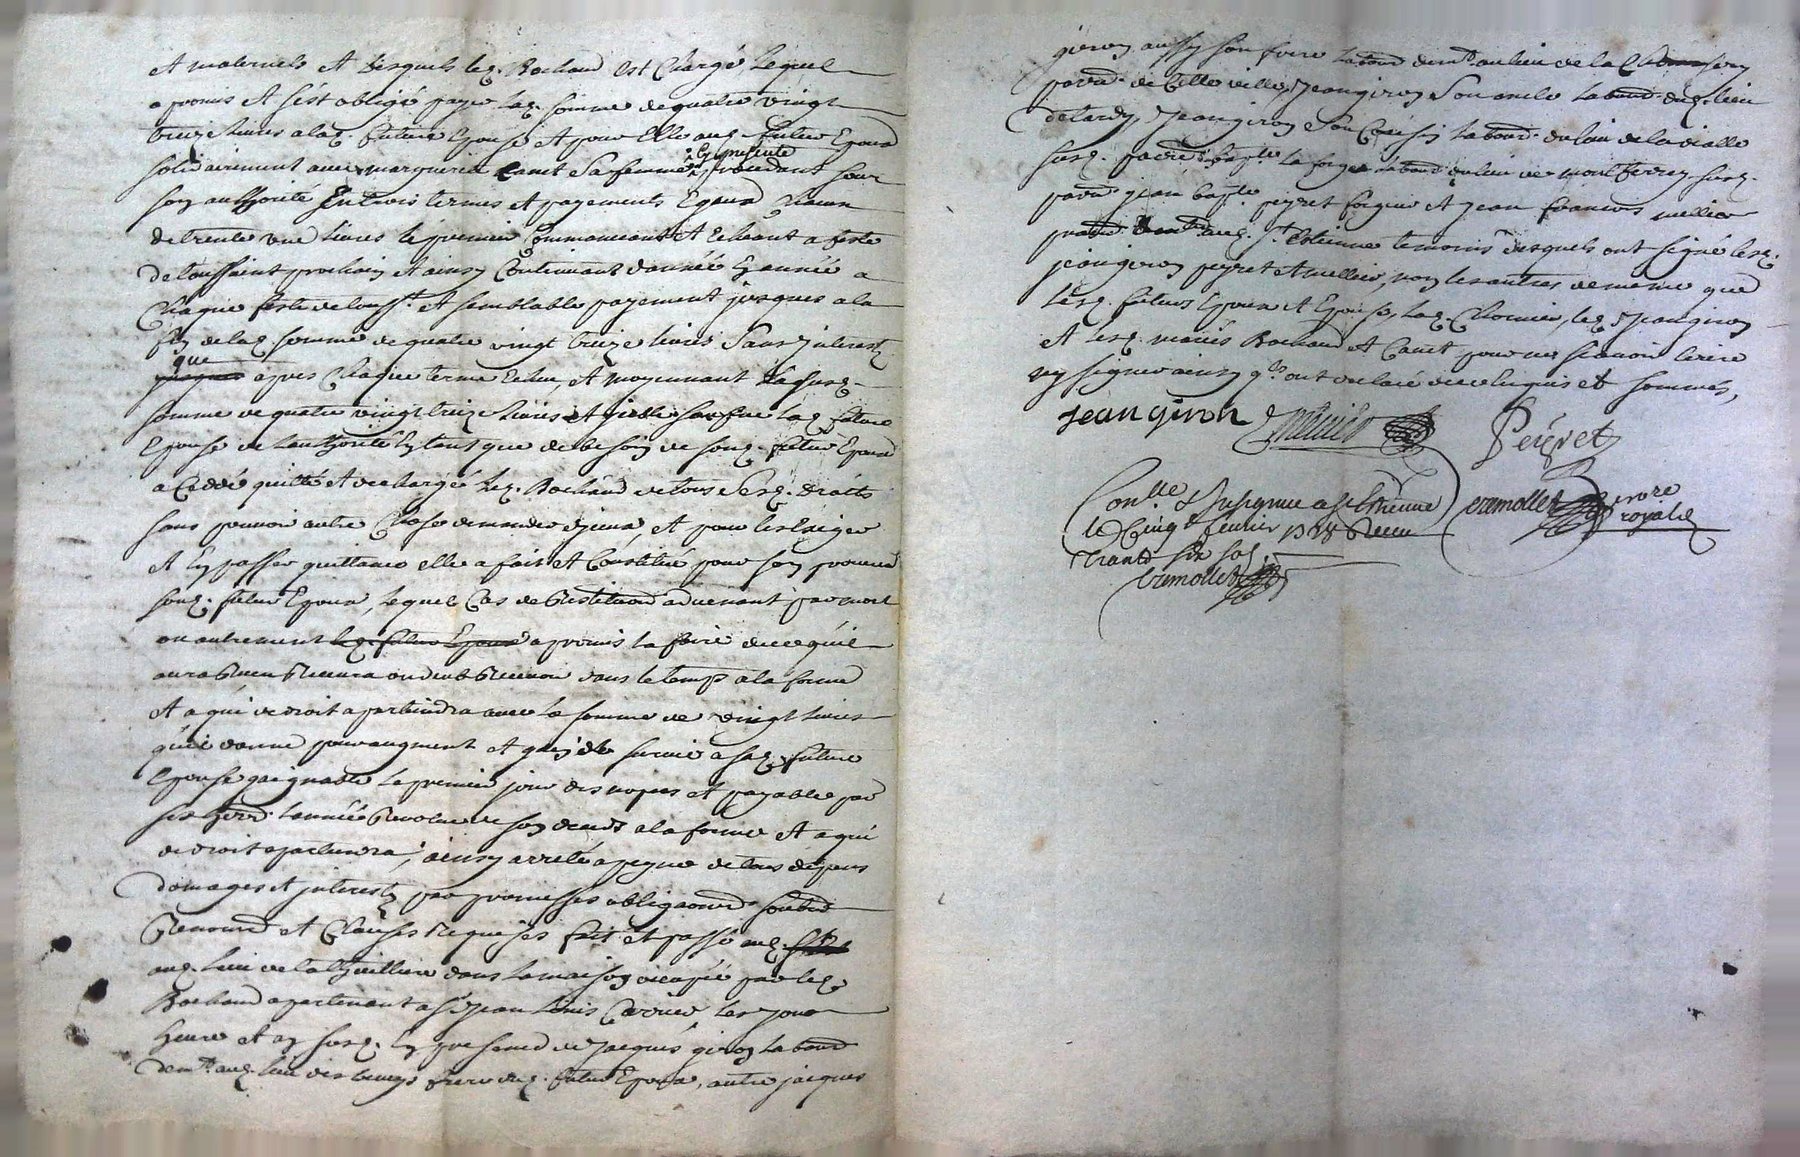 et maternels et desquels led. Rochand est chargé lequel
a promis et s'est obligé payer lad. somme de quatre vingt
treize livres a lad. future Epouse et pour elle aud. futur Epoux
solidairement avec marguerite Canet sa femme Cy presente procedant sous
son authorité En trois termes et payements Egaux chacun
de trente une livres le premier Commanceant et Echeant a feste
de toussaint prochain et ainsy Continuant d'année En année a
chaque feste de touss.t et semblable payement jusques a la
fin de lad. somme de quatre vingt treize livres sans interest
que apres chaque terme Echeu et moyennant lad. susd.
somme de quatre vingt treize livres et sauf lad. future
Epouse de l'authorité En tant que de besoin de sond. futur Epoux
a Cedé quitté et dechargé led. Rochand de tous sesd. droits
sans pouvoir autre chose demander d'jceux, et pour les Exiger
et En passer quittance elle a fait et Constitué pour son procureur
sond. futur Epoux, lequel Cas de restitution advenant par mort
ou autrement led. futur Epoux a promis la faire de ce qu'il
aura Receu Recevra ou deub Recevoir dans le temps a la forme
et a qui de droit apartiendra avec la somme de vingt livres
qu'il donne pour augment et gain de survie a sad. future
Epouse gaignable le premier jour des nopces et payable par
ses herit. l'année Revolue de son deceds a la forme et a qui
de droit apartiendra; ainsy arreté a peyne de tous depens
domages et interests par promesses obligaons soubmis
Renond. et Clauses Requises fait et passé aud.
aud. lieu de dans la maison ocupée par led.
Rochand apartenant a s.r jean Louis Carrier les jour
heure et an susd. En presence de jacques giron labour
dem.t aud. lieu des frere dud. futur Epoux, autre jacques
giron aussy son frere labour dem.t au lieu de la
paroi. de Celle ville, jean giron son oncle labour. dud. lieu
jean giron son Cousin labour. du lieu de la vialle
susd. paroi. la forge labour du lieu de montferrey susd.
paroi. jean bap.te peyret forgeur et jean francois mellier
aud. s.t Estienne temoins desquels ont signé lesd.
jean giron peyret et mellier, non les autres de meme que
lesd. futurs Epoux et Epouse, lad. led. jean giron
et lesd. mariés Rochand et Canet pour ne scavoir Ecrire
ny signer ainsy q.ls ont declaré de ce Enquis et sommés,
jean giron Mellier Peyret
Con.lle & jnsignué a s.t Etienne
le Cinq.e feurier Receu
trante six sols
Vramollet
Vramollet nore
royal